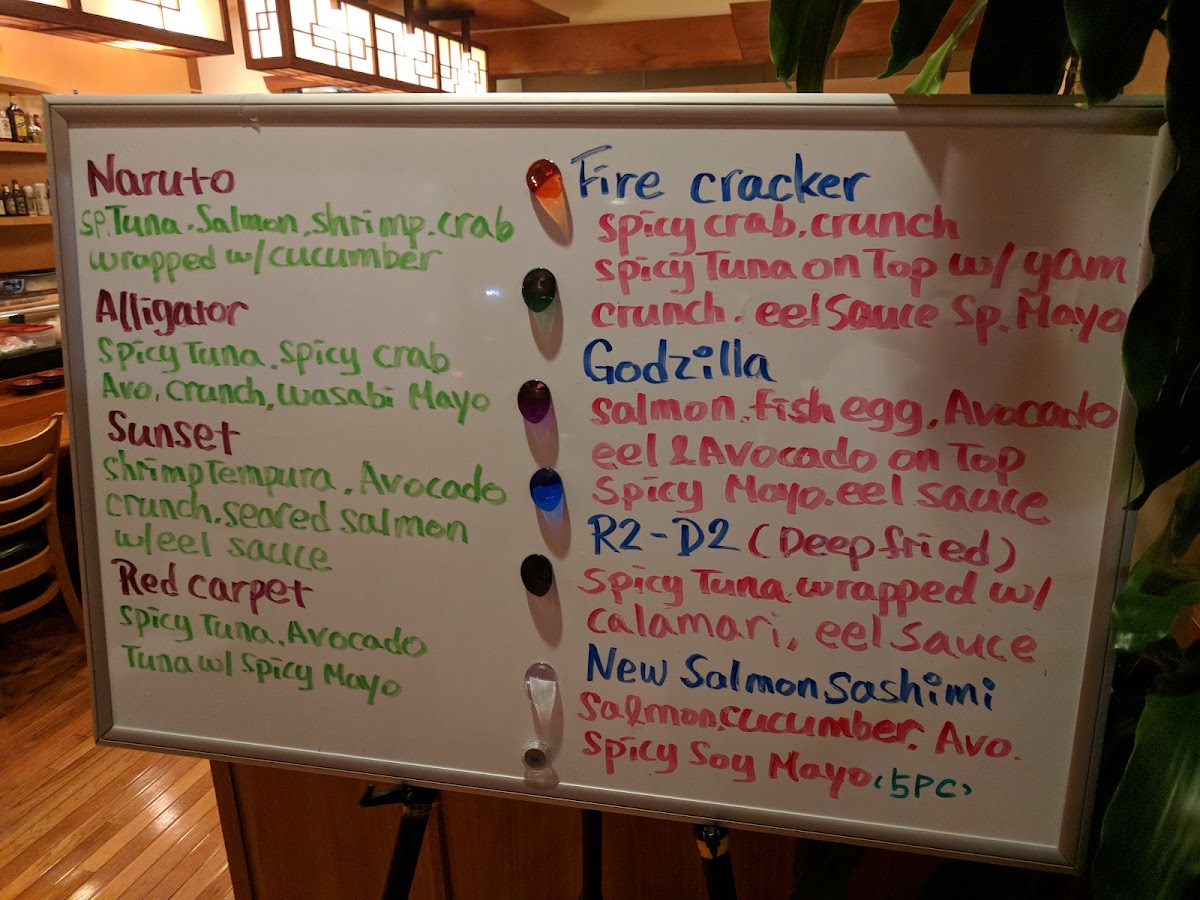 Naruto
sp. Tuna. Salmon, shrimp. crab
wrapped w/ cucumber
Alligator
Spicy Tuna. Spicy crab
Avo, crunch, wasabi Mayo
Sunset
shrimp Tempura. Avocado
crunch. seared salmon
w/ eel sauce
Red carpet
spicy Tuna. Avocado
Tuna w/ spicy Mayo
Fire cracker
spicy crab. crunch
spicy Tuna on Top w/ yam
crunch. eel Sauce Sp. Mayo
Godzilla
salmon. fish egg, Avocado
eel & Avocado on Top
spicy Mayo. eel sauce
R2-D2 (Deep fried)
spicy Tuna wrapped w/
calamari, eel Sauce
New Salmon Sashimi
Salmon, cucumber. Avo.
spicy Soy Mayo (5PC)